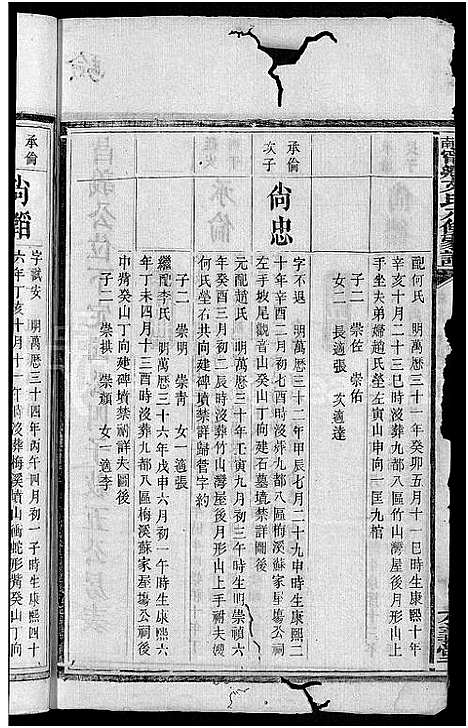 配何氏　明萬曆三十一年癸卯五月十一巳時生康熙十年
辛亥十月二十三巳時沒葬九都八區竹山灣屋後月形山上
手坐夫弟婦趙氏塋左寅山申向一互九棺
子二　崇佐　崇佑
女二　長適張　次適達
承倫
次子
尙忠
字不退　明萬曆三十二年甲辰七月二十九申時生康熙二
十年辛酉二月初七酉時沒葬九都八區梅溪蘇家屋場公祠後
左手坡尾觀音山癸山丁向建石墓墳禁詳圖後
元配趙氏　明萬曆三十年壬寅九月初三午時生明崇禎六
年癸酉三月初九戌時沒葬竹山灣屋後月形山上手祔夫嫂
何氏塋右共向建碑墳禁詳歸菅字約
子二　明　崇靑　女一　適張
繼配李氏　明萬曆三十六年戊申六月初一午時生康熙六
年丁未四月十三酉時沒葬九都八區梅溪蘇家屋場公祠後
巾觜癸山丁向建碑墳禁祠詳夫圖後
子二　崇拱　崇顏　女一　適李
承倫
字試安　明萬曆三十四年丙午四月初一子時生康熙四十
六年丁亥十月十一午時沒葬梅溪墳山兩蛇形觜癸山丁向